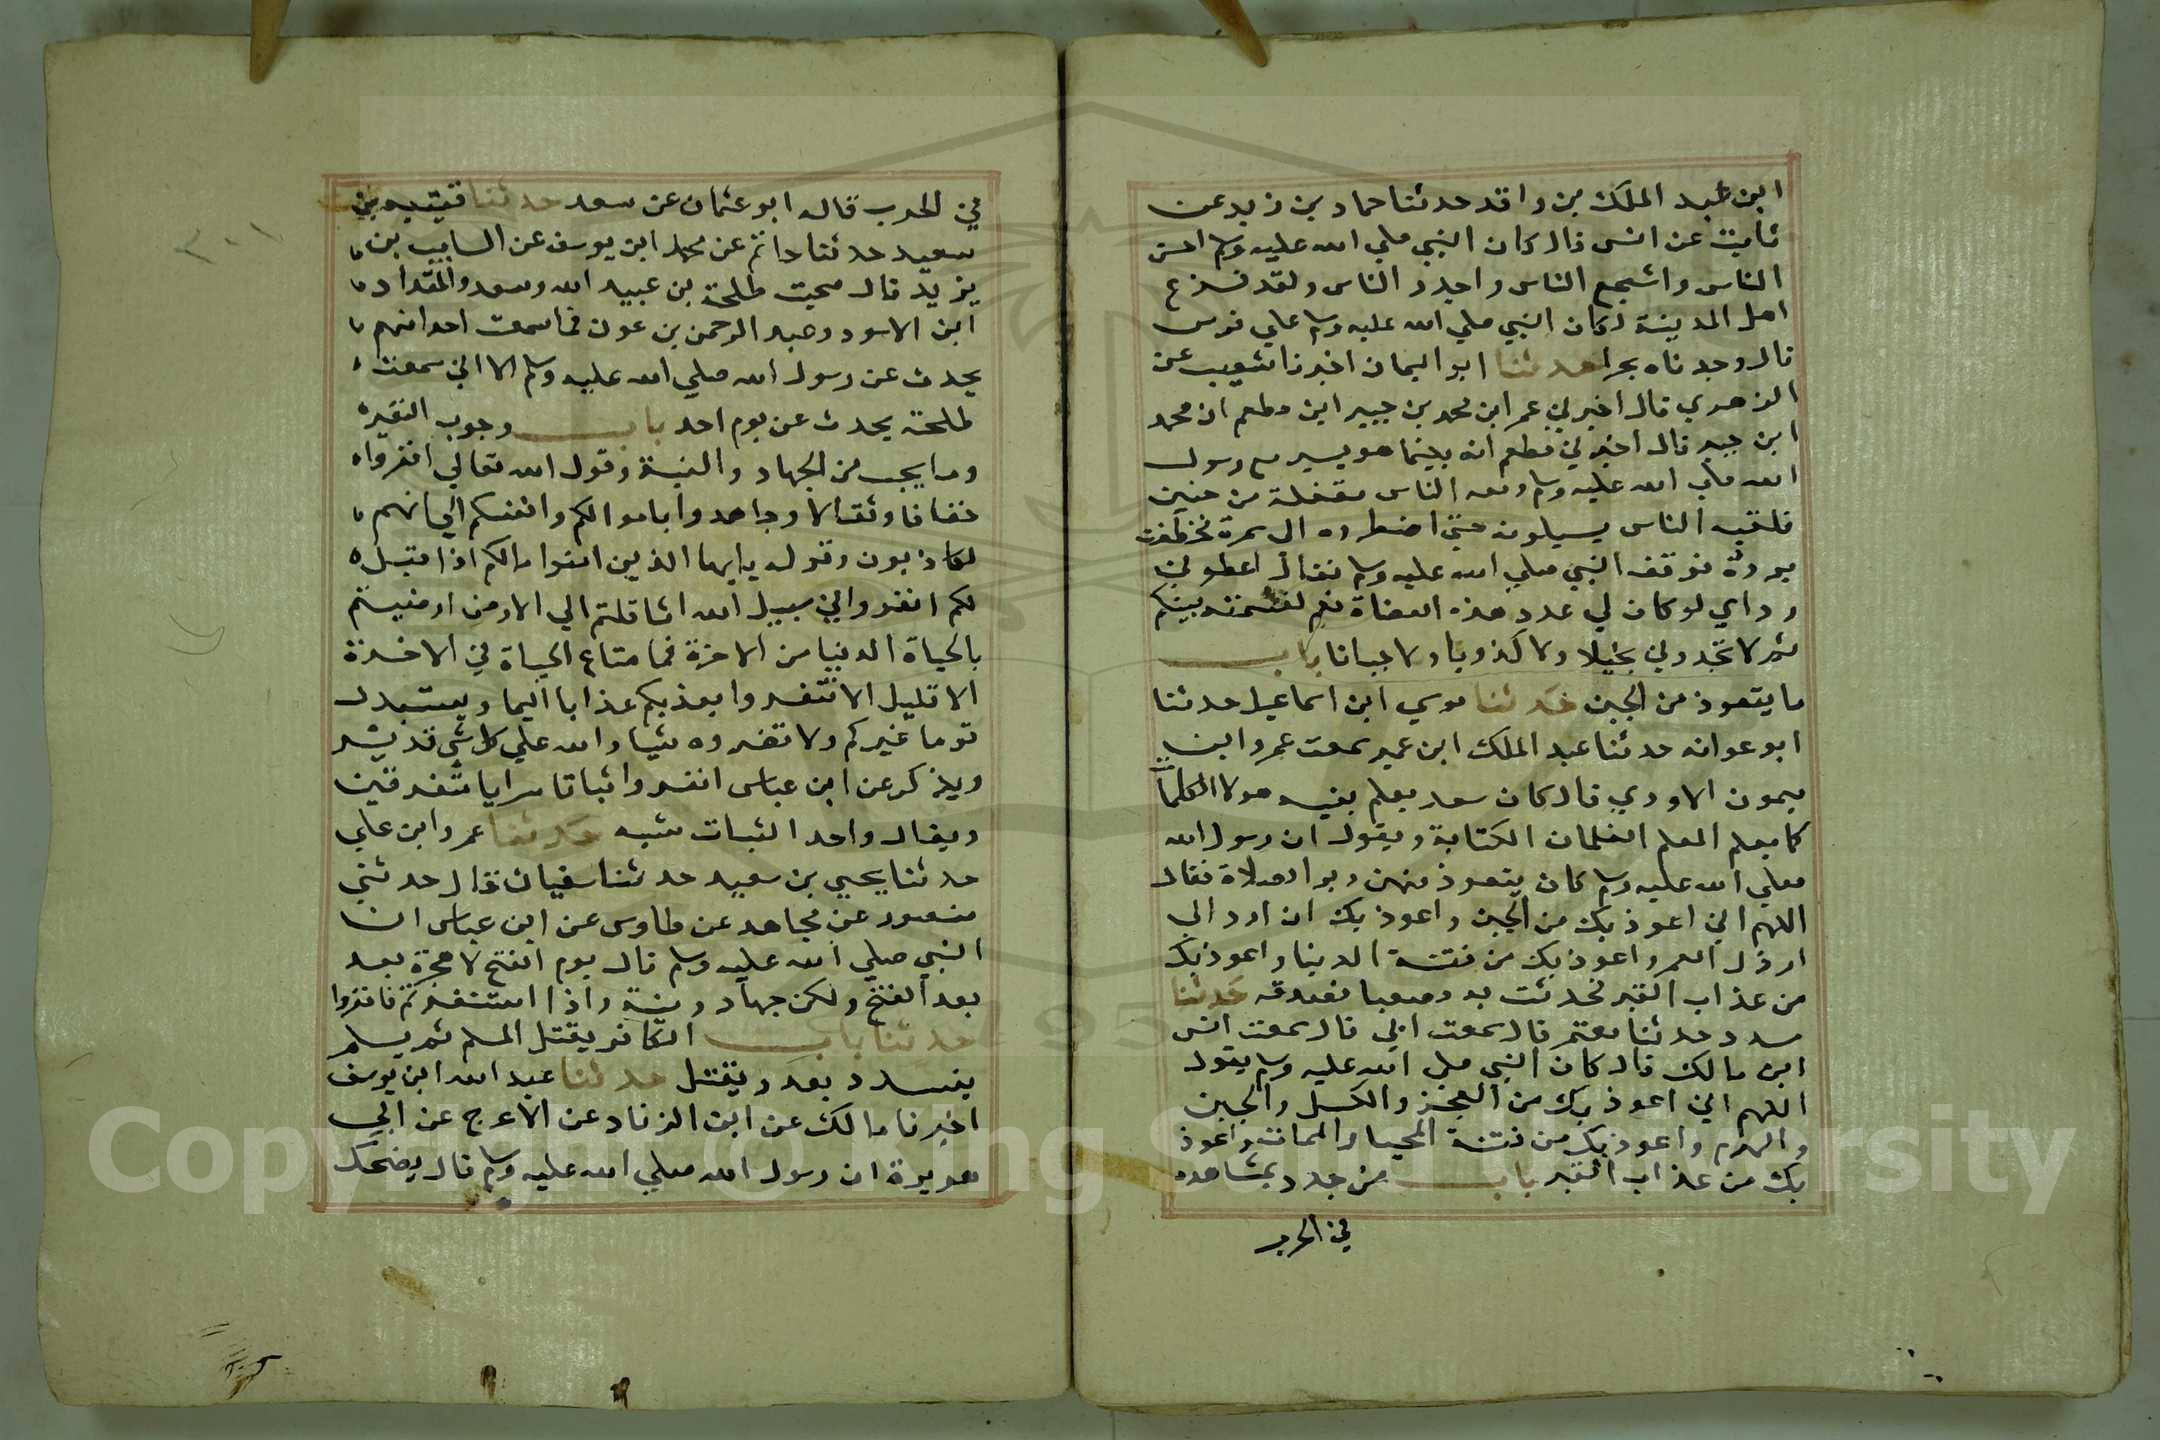 ابن عبد الملك بن واقد حدثنا حماد بن زيد عن
ثابت عن انس قال كان النبي صلي الله عليه وسلم احسن
الناس واشجع الناس واجود الناس ولقد فزع
اهل المدينة وكان النبي صلي الله عليه وسلم علي فرس
قال وجدناه بحرا حدثنا ابو اليمان اخبرنا شعيب عن
الزهري قال اخبرني عمر ابن محمد بن جبير ابن مطعم ان محمد
ابن جبير قال اخبرني مطعم انه بينما هو يسير مع رسول
الله صلي الله عليه وسلم ومعه الناس مقفلة من حنين
فلقيه الناس يسيلونه حتي اضطروه الي سمرة فخطفت
بردئه فوقف النبي صلي الله عليه وسلم فقال اعطوني
رداي لو كان لي عدد هذه العضاة نعم لقسمته بينكم
ثم لا تجدوني بخيلا ولا كذوبا ولا جبانا باب
ما يتعوذ من الجبن حدثنا موسي ابن اسماعيل حدثنا
ابو عوانه حدثنا عبد الملك ابن عمير سمعت عمرو ابن
ميمون الاودي قال كان سعد يعلم بنيه هولا الكلمات
كما يعلم المعلم الغلمان الكتابة ويقول ان رسول الله
صلي الله عليه وسلم كان يتعوذ منهن دبر الصلاة فقال
اللهم اني اعوذ بك من الجبن واعوذ بك ان ارد الي
ارذل العمر واعوذ بك من فتنة الدينا واعوذ بك
من عذاب القبر فحدثت به مصعبا فصدقه حدثنا
مسدد حدثنا معتمر قال سمعت ابي قال سمعت انس
ابن مالك قال كان النبي صلي الله عليه وسلم يقول
اللهم اني اعوذ بك من العجز والكسل والجبن
والهرم واعوذ بك من فتنة المحيا والممات واعوذ
بك من عذاب القبر باب من حدد بمشاهده
في الحرب
في الحرب قاله ابو عثمان عن سعد حدثنا قتيبه بن
سعيد حدثنا حاتم عن محمد ابن يوسف عن السايب بن
يزيد قال صحبت طلحة بن عبيد الله وسعد والمقداد
ابن الاسود وعبد الرحمن بن عون فما سمعت احدا منهم
يحدث عن رسول الله صلي الله عليه وسلم الا اني سمعت
طلحة يحدث عن يوم احد باب وجوب النفيره
وما يجب من الجهاد والنية وقول الله تعالي انفروا
خفافا وثقالا وجاهدوا باموالكم وانفسكم الي انهم
لكاذبون وقوله يا ايها الذين امنوا مالكم اذا قيل
لكم انفروا في سبيل الله اثاقلتم الي الارض ارضيتم
بالحياة الدنيا من الاخرة فما متاع الحياة في الاخرة
الا قليل الا تنفروا يعذبكم عذابا اليما ويستبدل
قوما غيركم ولا تضروه شيا والله علي كل شي قدير
ويذكر عن ابن عباس انفروا ثباتا سرايا متفرقين
ويقال واحد الثبات ثبه حدثنا عمرو ابن علي
حدثنا يحيي بن سعيد حدثنا سفيان قال حدثني
منصور عن مجاهد عن طاوس عن ابن عباس ان
النبي صلي الله عليه وسلم قال يوم الفتح لا هجرة بعد
بعد الفتح ولكن جهاد ونية واذا استنفرتم فانفروا
حدثنا باب الكافر يقتل المسلم ثم يسلم
يفسدد بعد ويقتل حدثنا عبد الله ابن يوسف
اخبرنا مالك عن ابن الزناد عن الاعرج عن ابي
هريرة ان رسول الله صلي الله عليه وسلم قال يضحك
٣٠١
Copyright © King Saud University